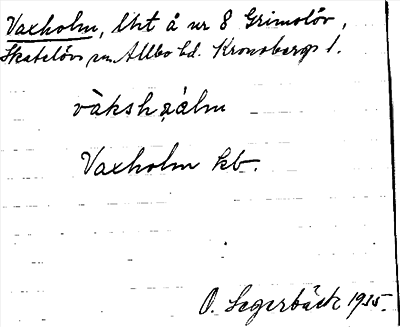 Vaxholm, lht å nr 8 Grimslöv,
Skatelövs sn, Allbo hd. Kronobergs l.
vàkshạ́lm
Vaxholm kb.
O. Segerbäck 1935.